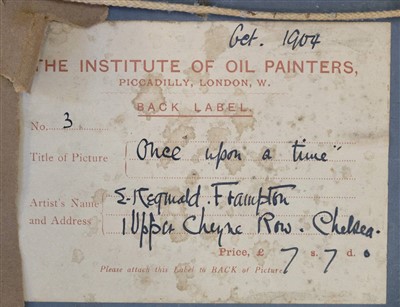 Oct. 1904
THE INSTITUTE OF OIL PAINTERS,
PICCADILLY, LONDON, W.
BACK LABEL
No. 3
Title of Picture "Once upon a time"
Artist's Name E. Reginald. Frampton
and Address 1 Upper Cheyne Row. Chelsea.
Price, £ 7 s. 7 d. 0
Please attach this Label to BACK of Picture